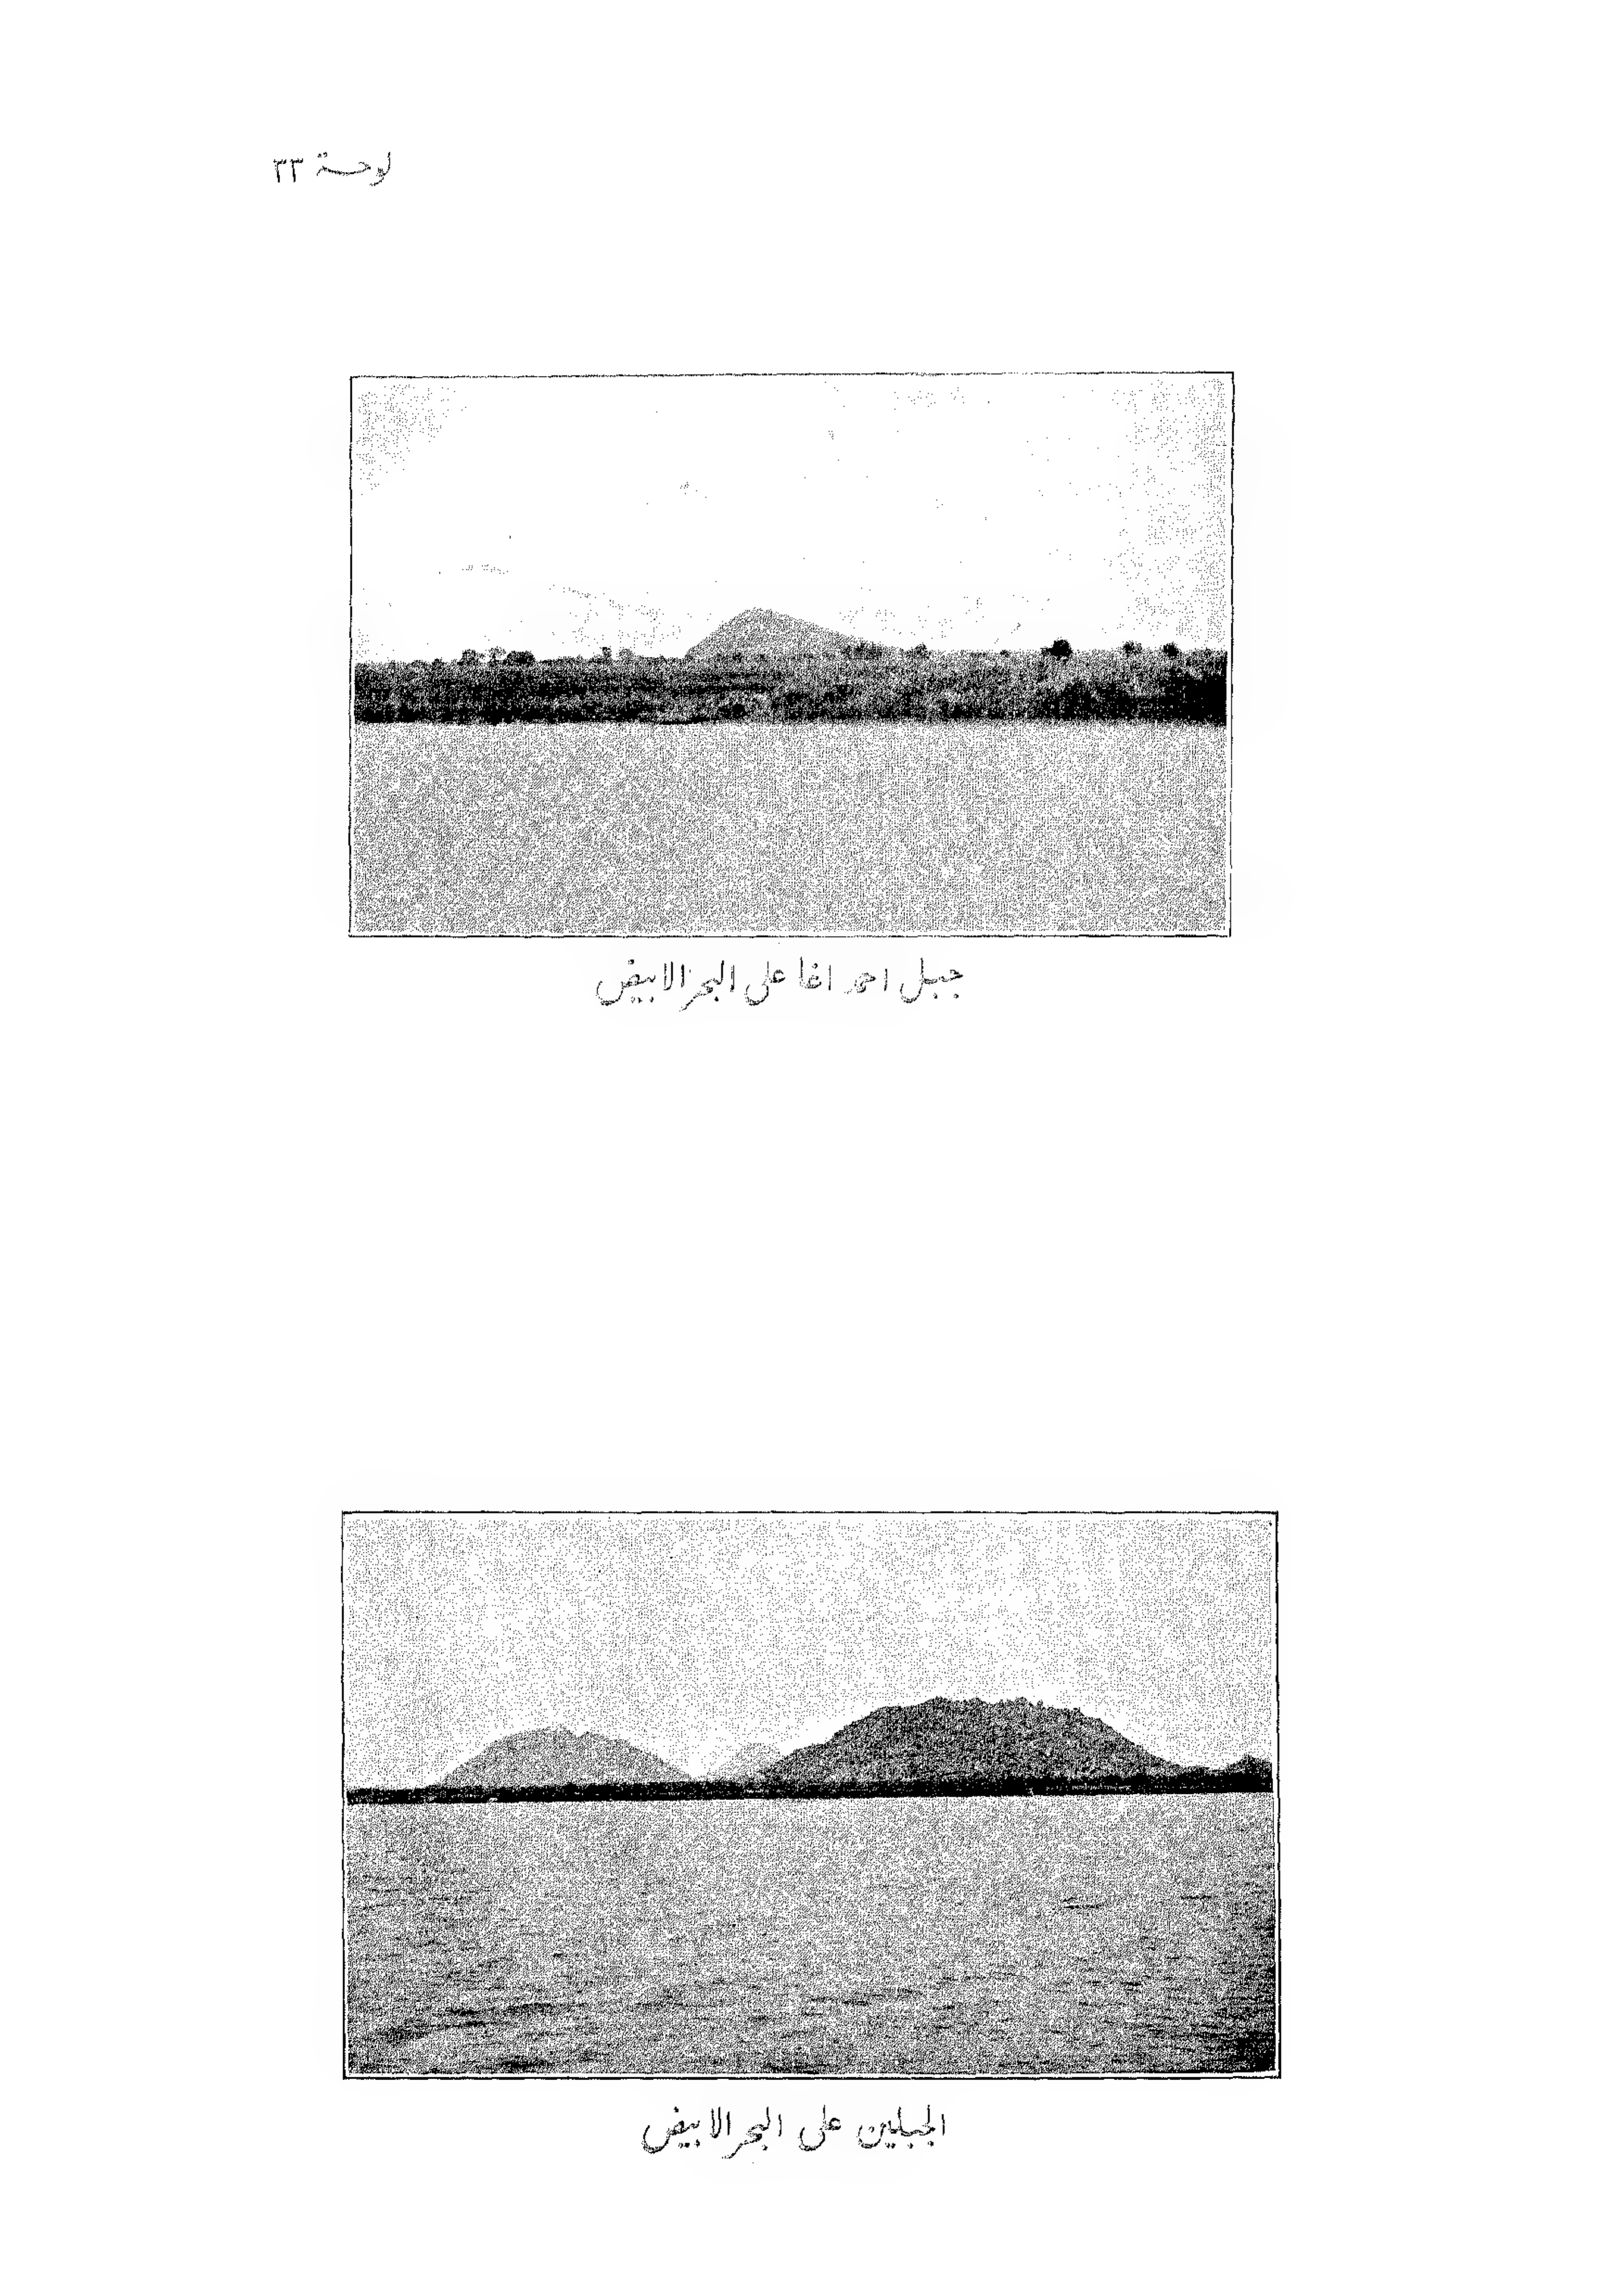 لوحة ٣٣
جبل احمد اغا على البحر الابيض
الجبلين على البحر الابيض